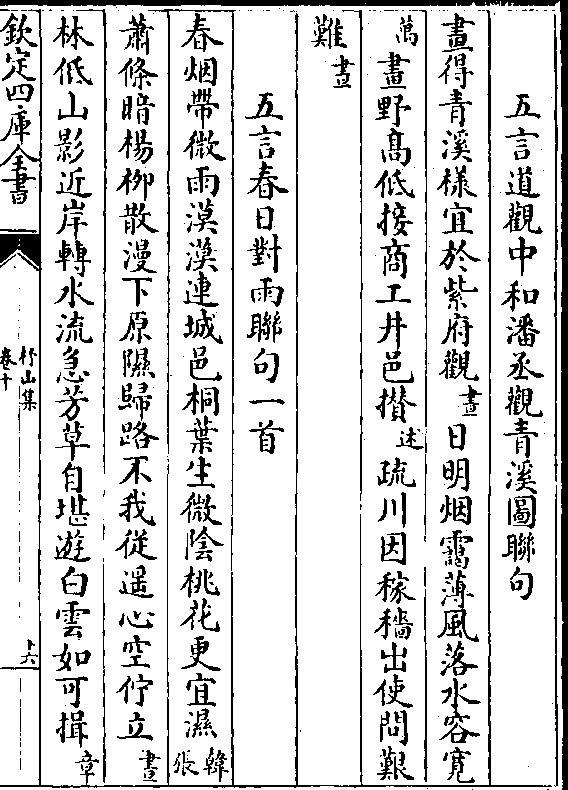 五言道觀中和潘丞觀青溪圖聯句
畫得青溪様宜於紫府觀畫日明烟靄薄風落水容寛
萬畫野髙低接商工井邑攅述疏川因稼穡出使問艱
難畫
五言春日對雨聯句一首
春烟帶微雨漠漠連城邑桐葉生微陰桃花更宜濕韓張
蕭條暗楊柳散漫下原隰歸路不我從遥心空佇立畫
林低山影近岸轉水流急芳草自堪遊白雲如可揖章
欽定四庫全書
杼山集
卷十
十六